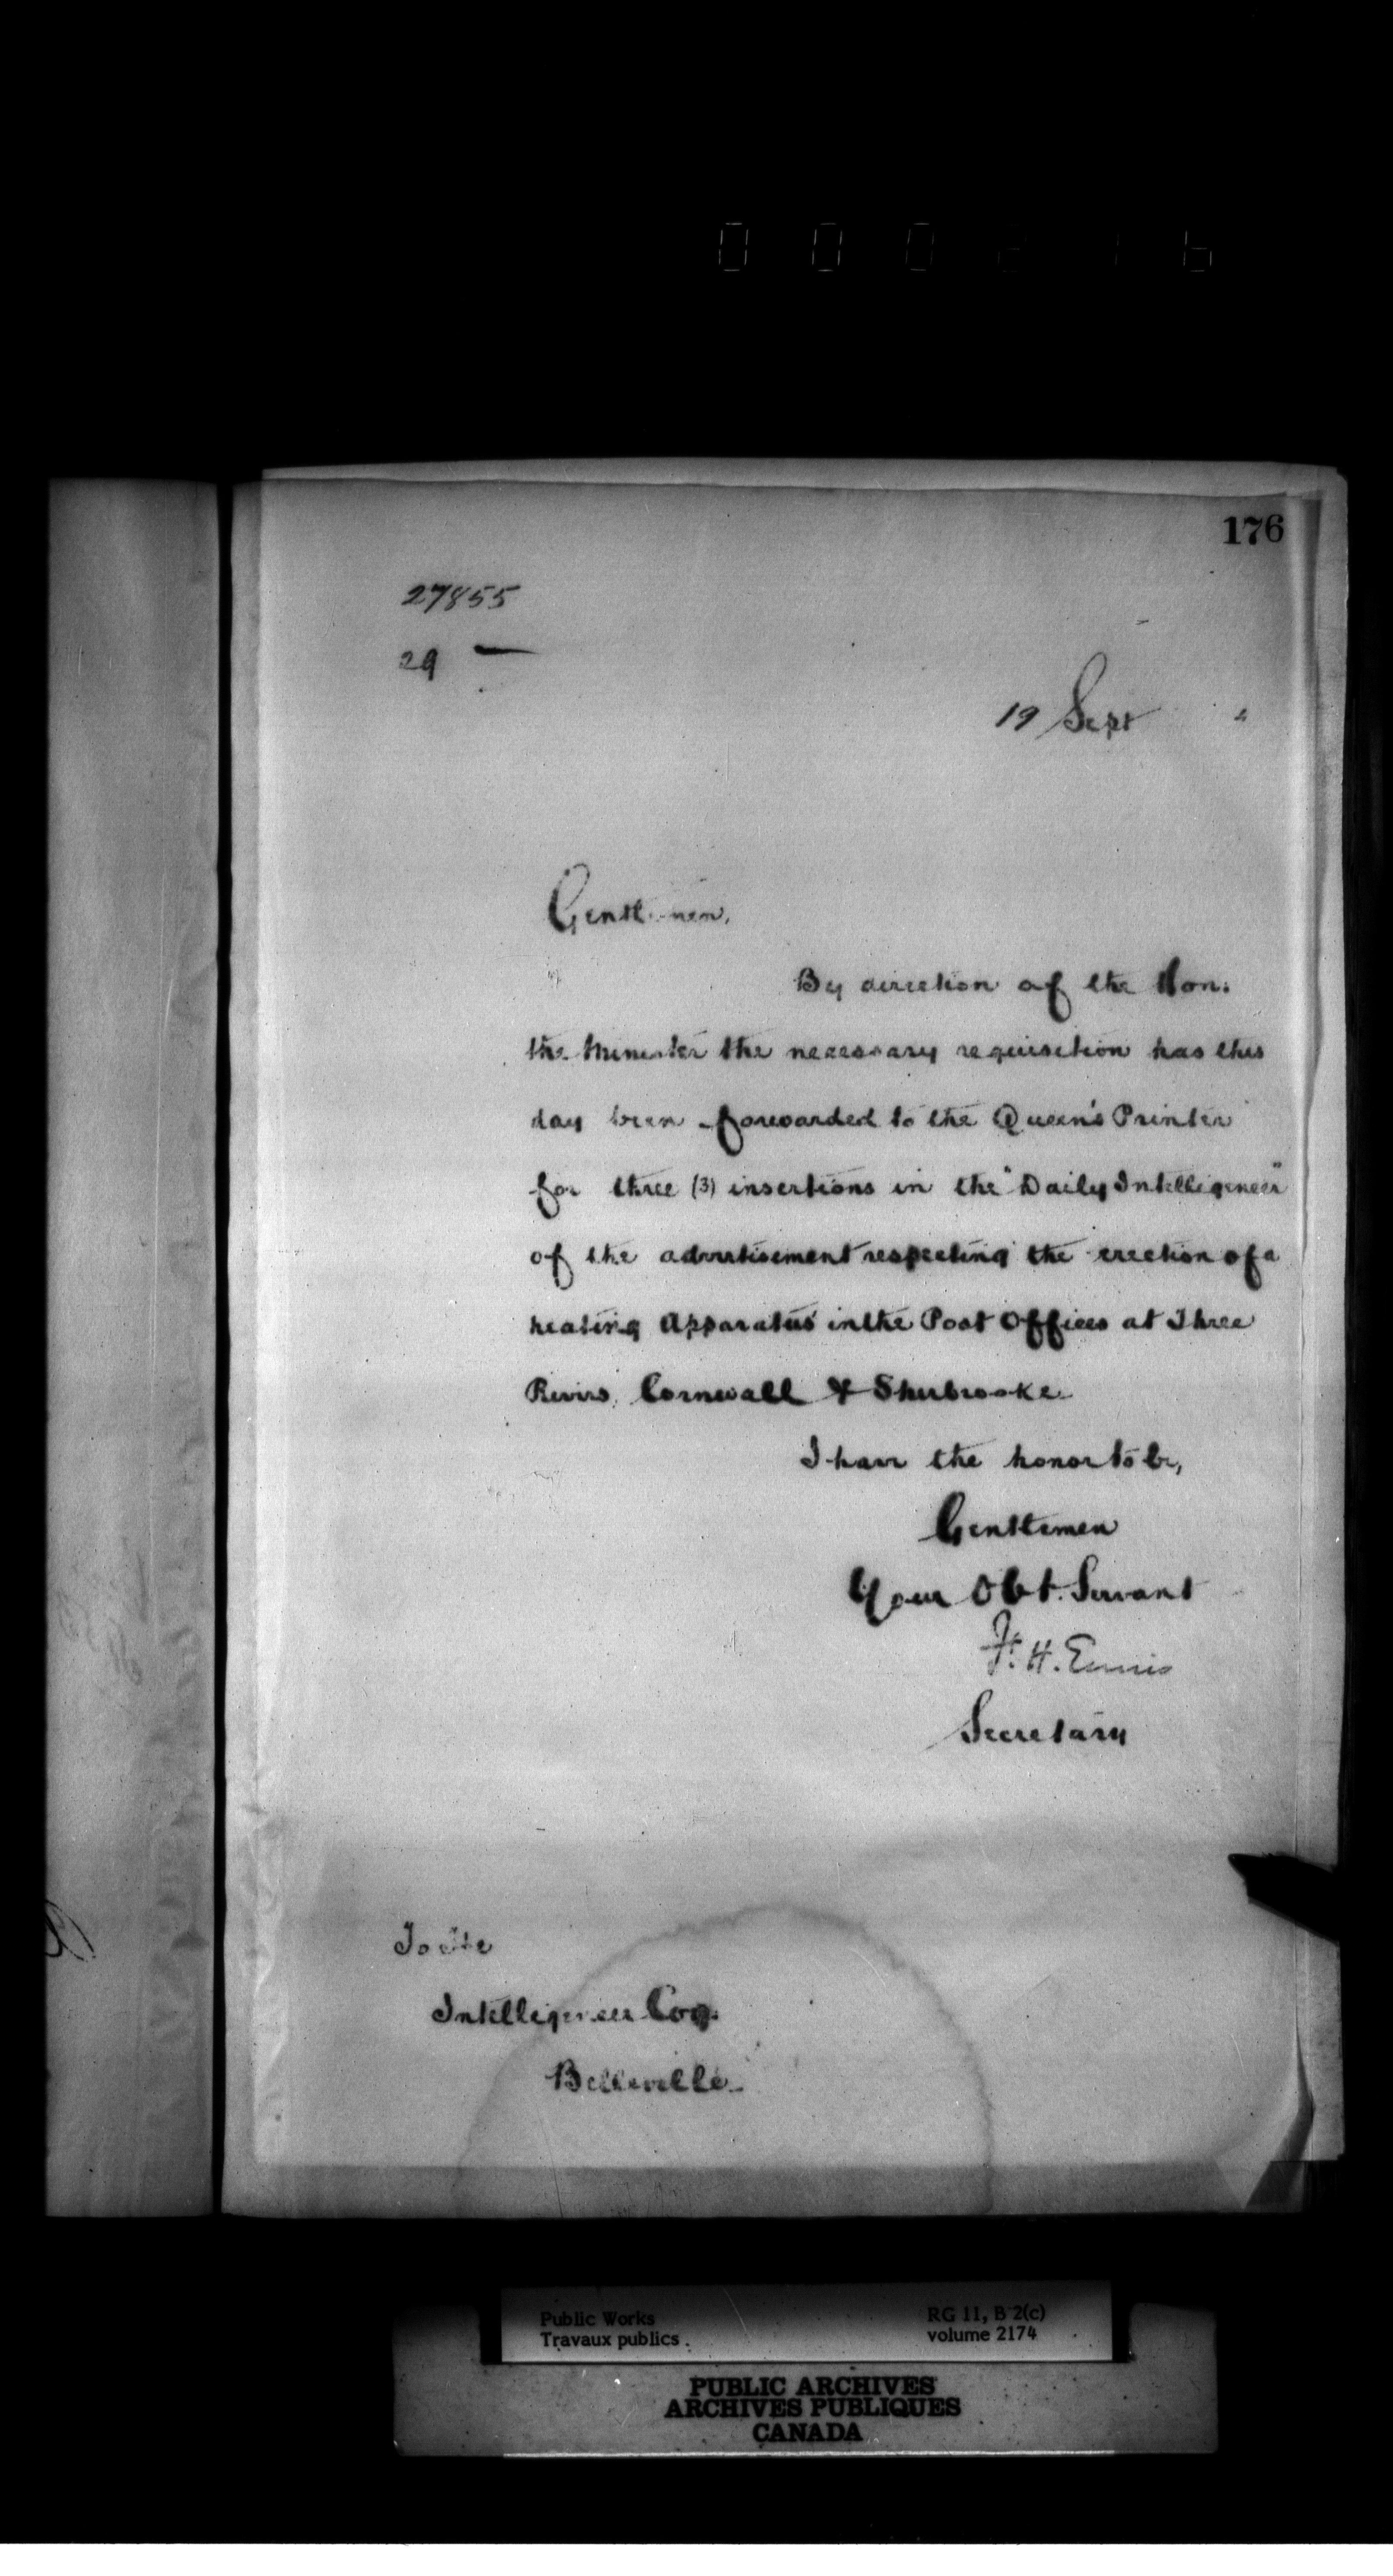 176
27855
29 —
19 Sept "
Gentlemen,
By direction of the Hon.
the Minister the necessary requisition has this
day been forwarded to the Queen's Printer
for three (3) insertions in the "Daily Intelligencer"
of the advertisement respecting the erection of a
heating Apparatus in the Post Offices at Three
Rivers, Cornwall & Sherbrooke
I have the honor to be,
Gentlemen
Your Obt. Servant
F. H. Ennis
Secretary
To the
Intelligencer Coy.
Belleville
Public Works RG 11, B 2(c)
Travaux publics volume 2174
PUBLIC ARCHIVES
ARCHIVES PUBLIQUES
CANADA